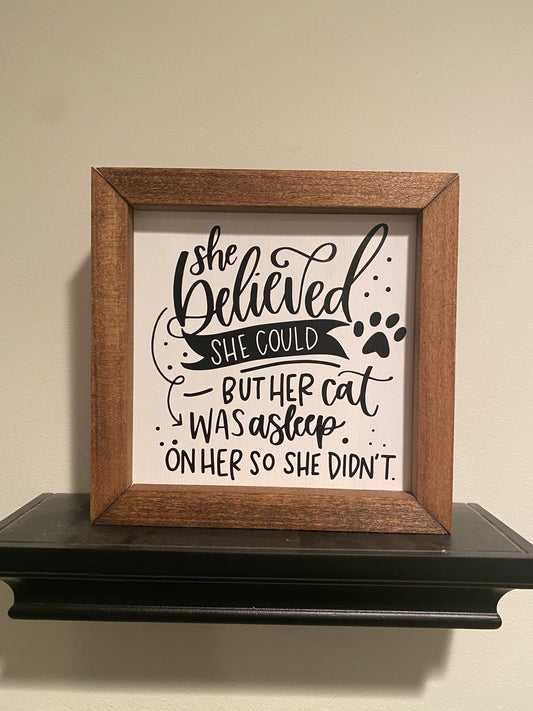 she
believed
SHE COULD
BUT HER cat
WAS asleep
ON HER SO SHE DIDN'T.